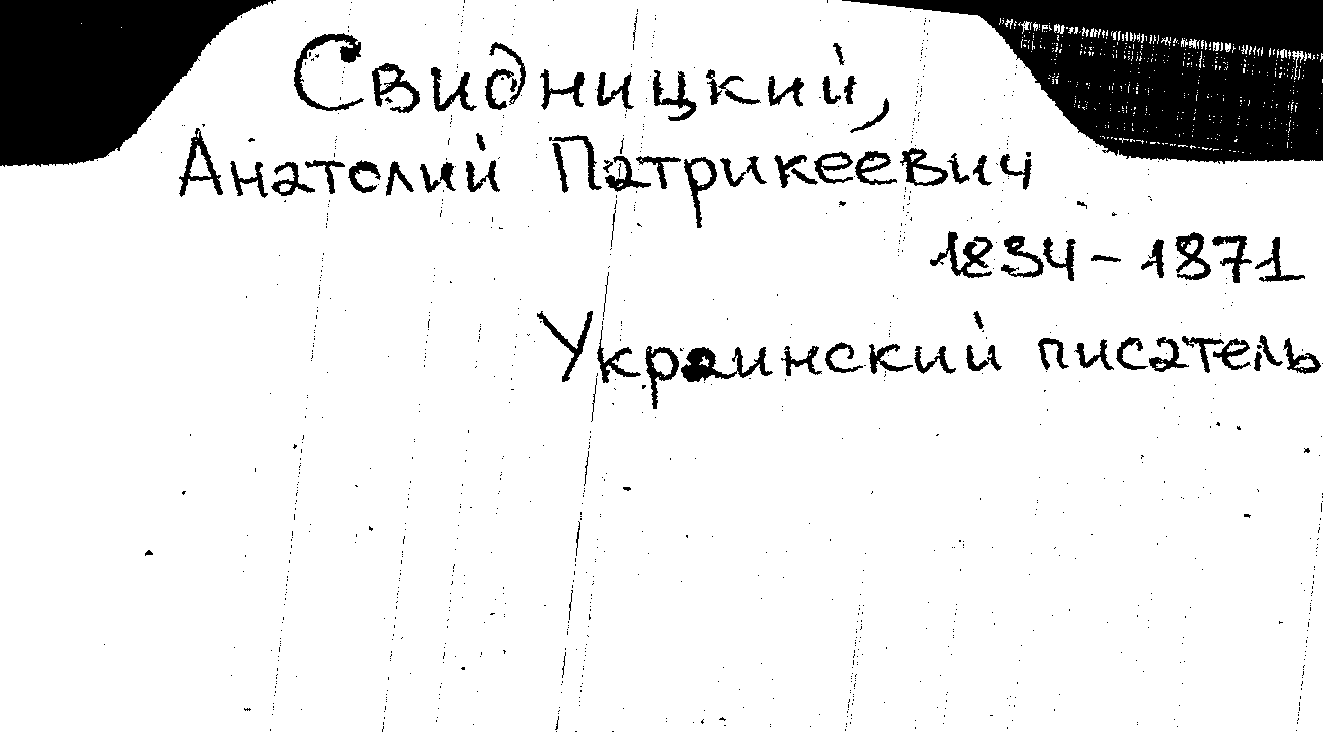 Свидницкий,
Анатолий Патрикеевич
1834-1871
Украинский писатель